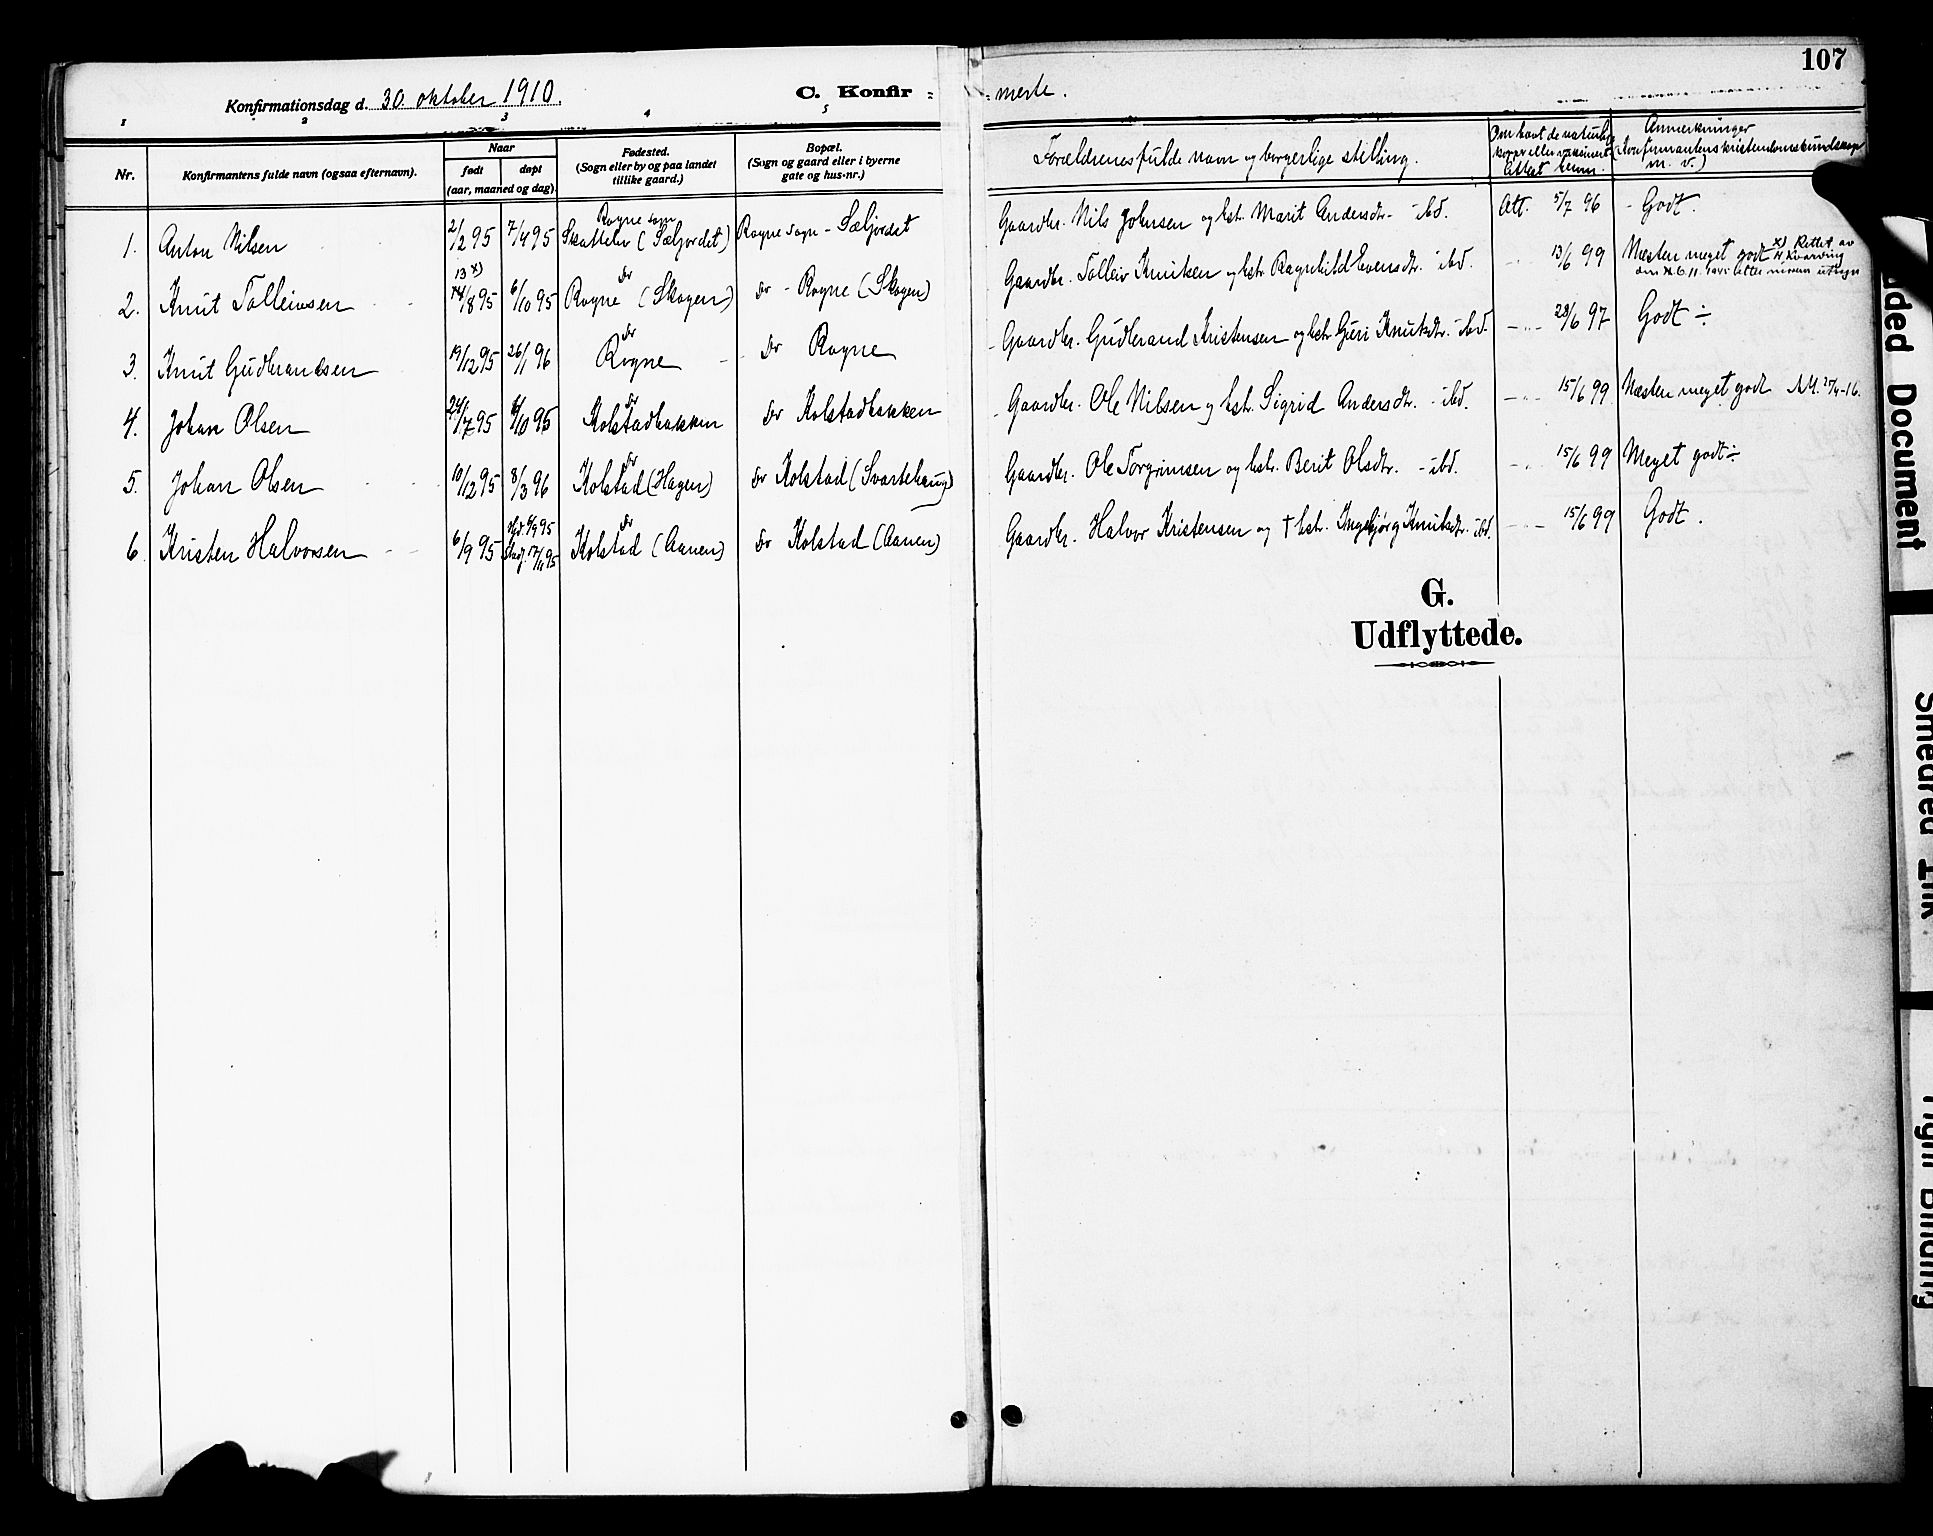 107
Konfirmationsdag d. 30. oktober 1910.
C. Konfir
merte.
1 2 3 4 5
Nr.
Konfirmantens fulde navn (ogsaa efternavn).
Naar
født
døpt
(aar, maaned og dag).
Fødested.
(Sogn eller by og paa landet
tillike gaard.)
Bopæl.
(Sogn og gaard eller i byerne
gate og hus-nr.)
Forældrenes fulde navn og borgerlige stilling.
Om havt de naturlige
kopper eller vaksinert.
Attest
Anmerkninger
(Konfirmantens kristendomskundskaper
m. v.)
1. Anton Nilsen 2/2 95 7/4 95 Rogne sogn Skattebu (Sæljordet) Rogne sogn - Sæljordet Gaardbr. Nils Johnsen og hst. Marit Andersdtr. - ibd. Att. 5/7 96 - Godt.
2. Knut Tolleivsen 13 x) 14/8 95 6/10 95 Do Rogne (Skogen) Do - Rogne (Skogen) Gaardbr. Tolleiv Knutsen og hst. Ragnhild Evensdtr. ibd. - " - 13/6 99 Næsten meget godt x) Rettet av
3. Knut Gudbrandsen 19/12 95 26/1 96 Do Rogne Do Rogne Gaardbr. Gudbrand Kristensen og hst. Guri Knutsdtr. ibd. - " - 28/6 97 Godt ÷
4. Johan Olsen 24/7 95 6/10 95 Do Kolstadbakken Do Kolstadbakken Gaardbr. Ole Nilsen og hst. Sigrid Andersdtr. - ibd. - " - 15/6 99 Næsten meget godt 25/4-16.
5. Johan Olsen 10/12 95 8/3 96 Do Kolstad (Hagen) Do Kolstad (Svartehaug) Gaardbr. Ole Torgrimsen og hst. Berit Olsdtr. - ibd. - " - 15/6 99 Meget godt ÷
6. Kristen Halvorsen 6/9 95 hjd. 6/9 95 Stadf. 17/11 95 Do Kolstad (Aanen) Do Kolstad (Aanen) Gaardbr. Halvor Kristensen og † hst. Ingebjørg Knutsdtr. ibd. - " - 15/6 99 Godt.
G.
Udflyttede.
ded Document
Smeared Ink
Tight Binding